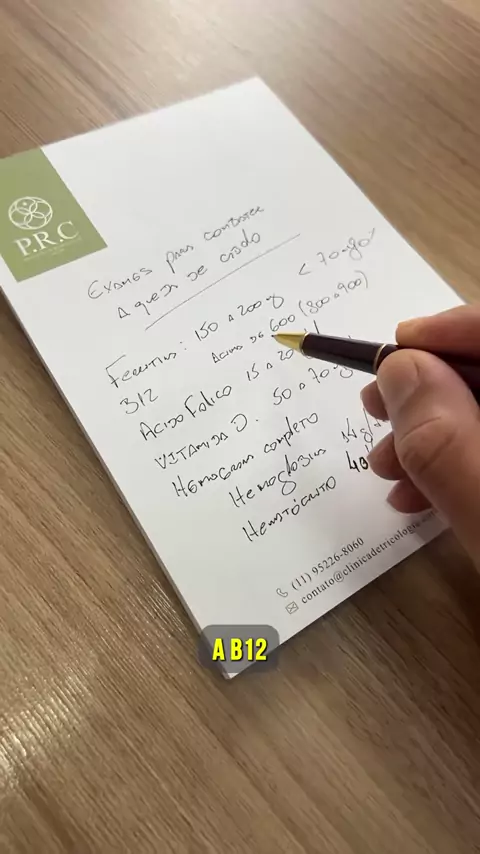 P.R.C
Exames para combater
a queda de cabelo
Ferritina: 150 a 200 < 70
B12 Acima de 600 (800 a 900)
Ácido Fólico 15 a 20
Vitamina D. 50 a 70
Hemograma completo
Hemoglobina 14
Hematócrito 40
(11) 95226-8060
contato@clinicadetricologia
A B12